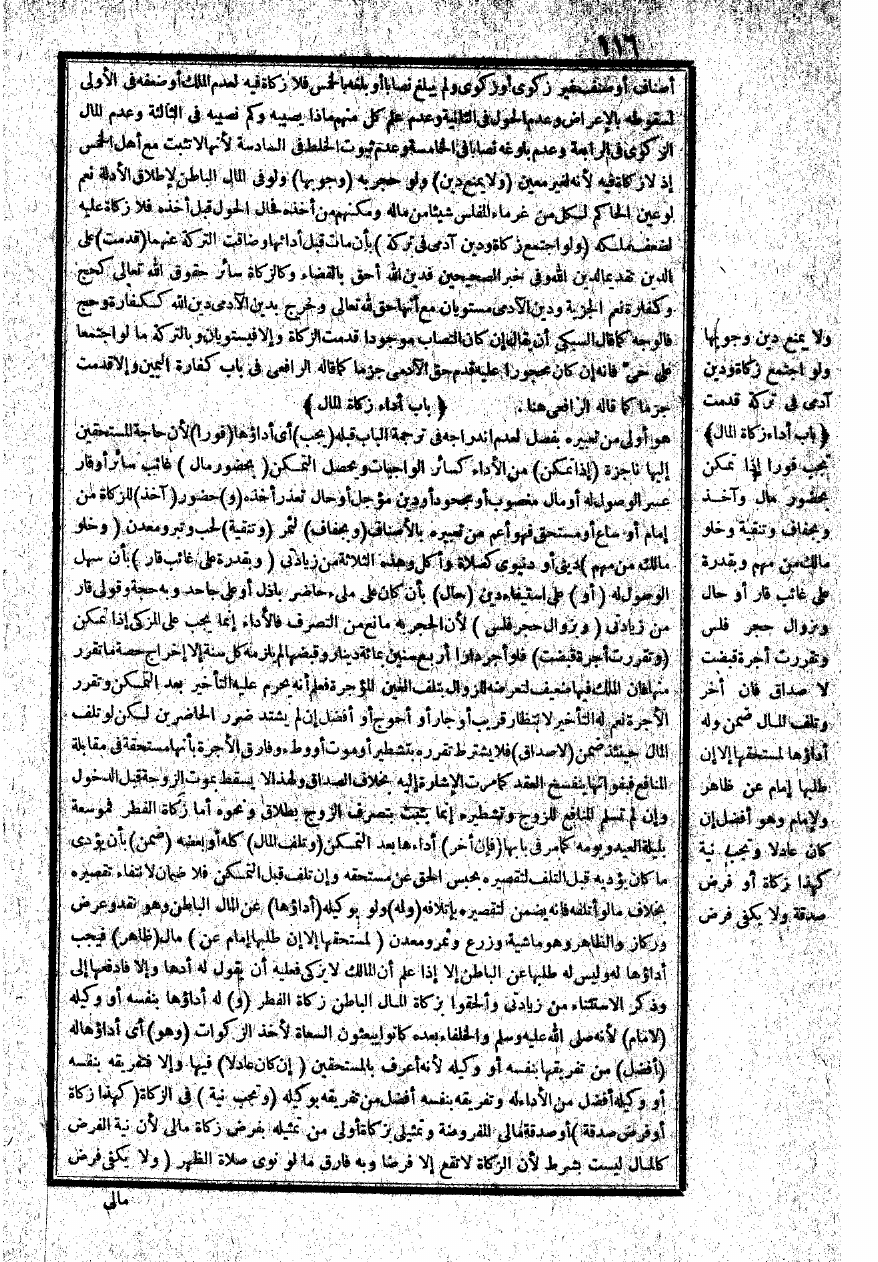 ١١٦
أصناف أو صنف غير زكوى أو زكوى ولم يبلغ نصابا أو بلغه بالخمس فلا زكاة فيه لعدم الملك أو ضعفه فى الأولى
لسقوطه بالإعراض وعدم الحول فى الثانية وعدم علم كل منهم ماذا يصيبه وكم نصيبه فى الثالثة وعدم المال
الزكوى فى الرابعة وعدم بلوغه نصابا فى الخامسة وعدم ثبوت الخلط فى السادسة لأنها لا تثبت مع أهل الخمس
إذ لا زكاة فيه لأنه لغير معين (ولا يمنع دين) ولو حجر به (وجوبها) ولو فى المال الباطن لإطلاق الأدلة نعم
لو عين الحاكم لكل من غرماء المفلس شيئا من ماله ومكنهم من أخذه فحال الحول قبل أخذه فلا زكاة عليه
لضعف ملكه (ولو اجتمع زكاة ودين آدمى فى تركة) بأن مات قبل أدائها وضاقت التركة عنهما (قدمت) على
الدين تقديما لدين الله وفى خبر الصحيحين فدين الله أحق بالقضاء وكالزكاة سائر حقوق الله تعالى كحج
وكفارة نعم الجزية ودين الآدمى مستويان مع أنها حق لله تعالى وخرج بدين الآدمى دين الله ككفارة وحج
فالوجه كما قال السبكى أن يقال إن كان النصاب موجودا قدمت الزكاة وإلا فيستويان وبالتركة ما لو اجتمعا
على حى فانه إن كان محجورا عليه قدم حق الآدمى جزما كما قاله الرافعى فى باب كفارة اليمين وإلا قدمت
جزما كما قاله الرافعى هنا . ﴿ باب أداء زكاة المال ﴾
هو أولى من تعبيره بفصل لعدم اندراجه فى ترجمة الباب قبله (يجب) أى أداؤها (فورا) لأن حاجة المستحقين
إليها ناجزة (إذا تمكن) من الأداء كسائر الواجبات ويحصل التمكن (بحضور مال) غائب سائر أو قار
عسر الوصول له أو مال مغصوب أو مجحود أو دين مؤجل أو حال تعذر أخذه (و) حضور (آخذ) للزكاة من
إمام أو ساع أو مستحق فهو أعم من تعبيره بالأصناف (وبجفاف) لثمر (وتنقية) لحب وتبر ومعدن (وخلو
مالك من مهم) دينى أو دنيوى كصلاة وأكل وهذه الثلاثة من زيادتى (وبقدرة على غائب قار) بأن سهل
الوصول له (أو) على استيفاء دين (حال) بأن كان على ملىء حاضر باذل أو على جاحد وبه حجة وقولى قار
من زيادتى (وبزوال حجر فلس) لأن الحجر به مانع من التصرف فالأداء إنما يجب على المزكى إذا تمكن
(وتقررت أجرة قبضت) فلو أجر دارا أربع سنين بمائة دينار وقبضها لم يلزمه كل سنة إلا إخراج حصة ما تقرر
منها فان الملك فيها ضعيف لتعرضه للزوال بتلف العين المؤجرة فعلم أنه يحرم عليه التأخير بعد التمكن وتقرر
الأجرة نعم له التأخير لانتظار قريب أو جار أو أحوج أو أفضل إن لم يشتد ضرر الحاضرين لكن لو تلف
المال حينئذ ضمن (لا صداق) فلا يشترط تقرره بتشطير أو موت أو وطء وفارق الأجرة بأنها مستحقة فى مقابلة
المنافع فبفواتها ينفسخ العقد كما مرت الإشارة إليه بخلاف الصداق ولهذا لا يسقط بموت الزوجة قبل الدخول
وإن لم تسلم المنافع للزوج وتشطيره إنما يثبت بتصرف الزوج بطلاق ونحوه أما زكاة الفطر فموسعة
بليلة العيد ويومه كما مر فى بابها (فإن أخر) أداءها بعد التمكن (وتلف المال) كله أو بعضه (ضمن) بأن يؤدى
ما كان يؤديه قبل التلف لتقصيره بحبس الحق عن مستحقه وإن تلف قبل التمكن فلا ضمان لانتفاء تقصيره
بخلاف ما لو أتلفه فانه يضمن لتقصيره بإتلافه (وله) ولو بوكيله (أداؤها) عن المال الباطن وهو نقد وعرض
وركاز والظاهر وهو ماشية وزرع وثمر ومعدن (لمستحقها إلا إن طلبها إمام عن) مال (ظاهر) فيجب
أداؤها له وليس له طلبها عن الباطن إلا إذا علم أن المالك لا يزكى فعليه أن يقول له أدها وإلا فادفعها إلى
وذكر الاستثناء من زيادتى وألحقوا بزكاة المال الباطن زكاة الفطر (و) له أداؤها بنفسه أو وكيله
(لإمام) لأنه صلى الله عليه وسلم والخلفاء بعده كانوا يبعثون السعاة لأخذ الزكوات (وهو) أى أداؤها له
(أفضل) من تفريقها بنفسه أو وكيله لأنه أعرف بالمستحقين (إن كان عادلا) فيها وإلا فتفريقه بنفسه
أو وكيله أفضل من الأداء له وتفريقه بنفسه أفضل من تفريقه بوكيله (وتجب نية) فى الزكاة (كهذا زكاة
أو فرض صدقة) أو صدقة مالى المفروضة وتمثيلى بزكاة أولى من تمثيله بفرض زكاة مالى لأن نية الفرض
كالمال ليست بشرط لأن الزكاة لا تقع إلا فرضا وبه فارق ما لو نوى صلاة الظهر (ولا يكفى فرض
مالى
ولا يمنع دين وجوبها
ولو اجتمع زكاة ودين
آدمى فى تركة قدمت
﴿ باب أداء زكاة المال ﴾
تجب فورا إذا تمكن
بحضور مال وآخذ
وبجفاف وتنقية وخلو
مالك من مهم وبقدرة
على غائب قار أو حال
وبزوال حجر فلس
وتقررت أجرة قبضت
لا صداق فان أخر
وتلف المال ضمن وله
أداؤها لمستحقها إلا إن
طلبها إمام عن ظاهر
ولإمام وهو أفضل إن
كان عادلا وتجب نية
كهذا زكاة أو فرض
صدقة ولا يكفى فرض